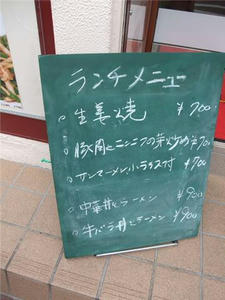 ランチメニュー
○生姜焼 ¥700
○豚肉とニンニクの芽炒め ¥700
○サンマーメン、小ライス付 ¥700
○中華丼とラーメン ¥900
○牛バラ丼とラーメン ¥900